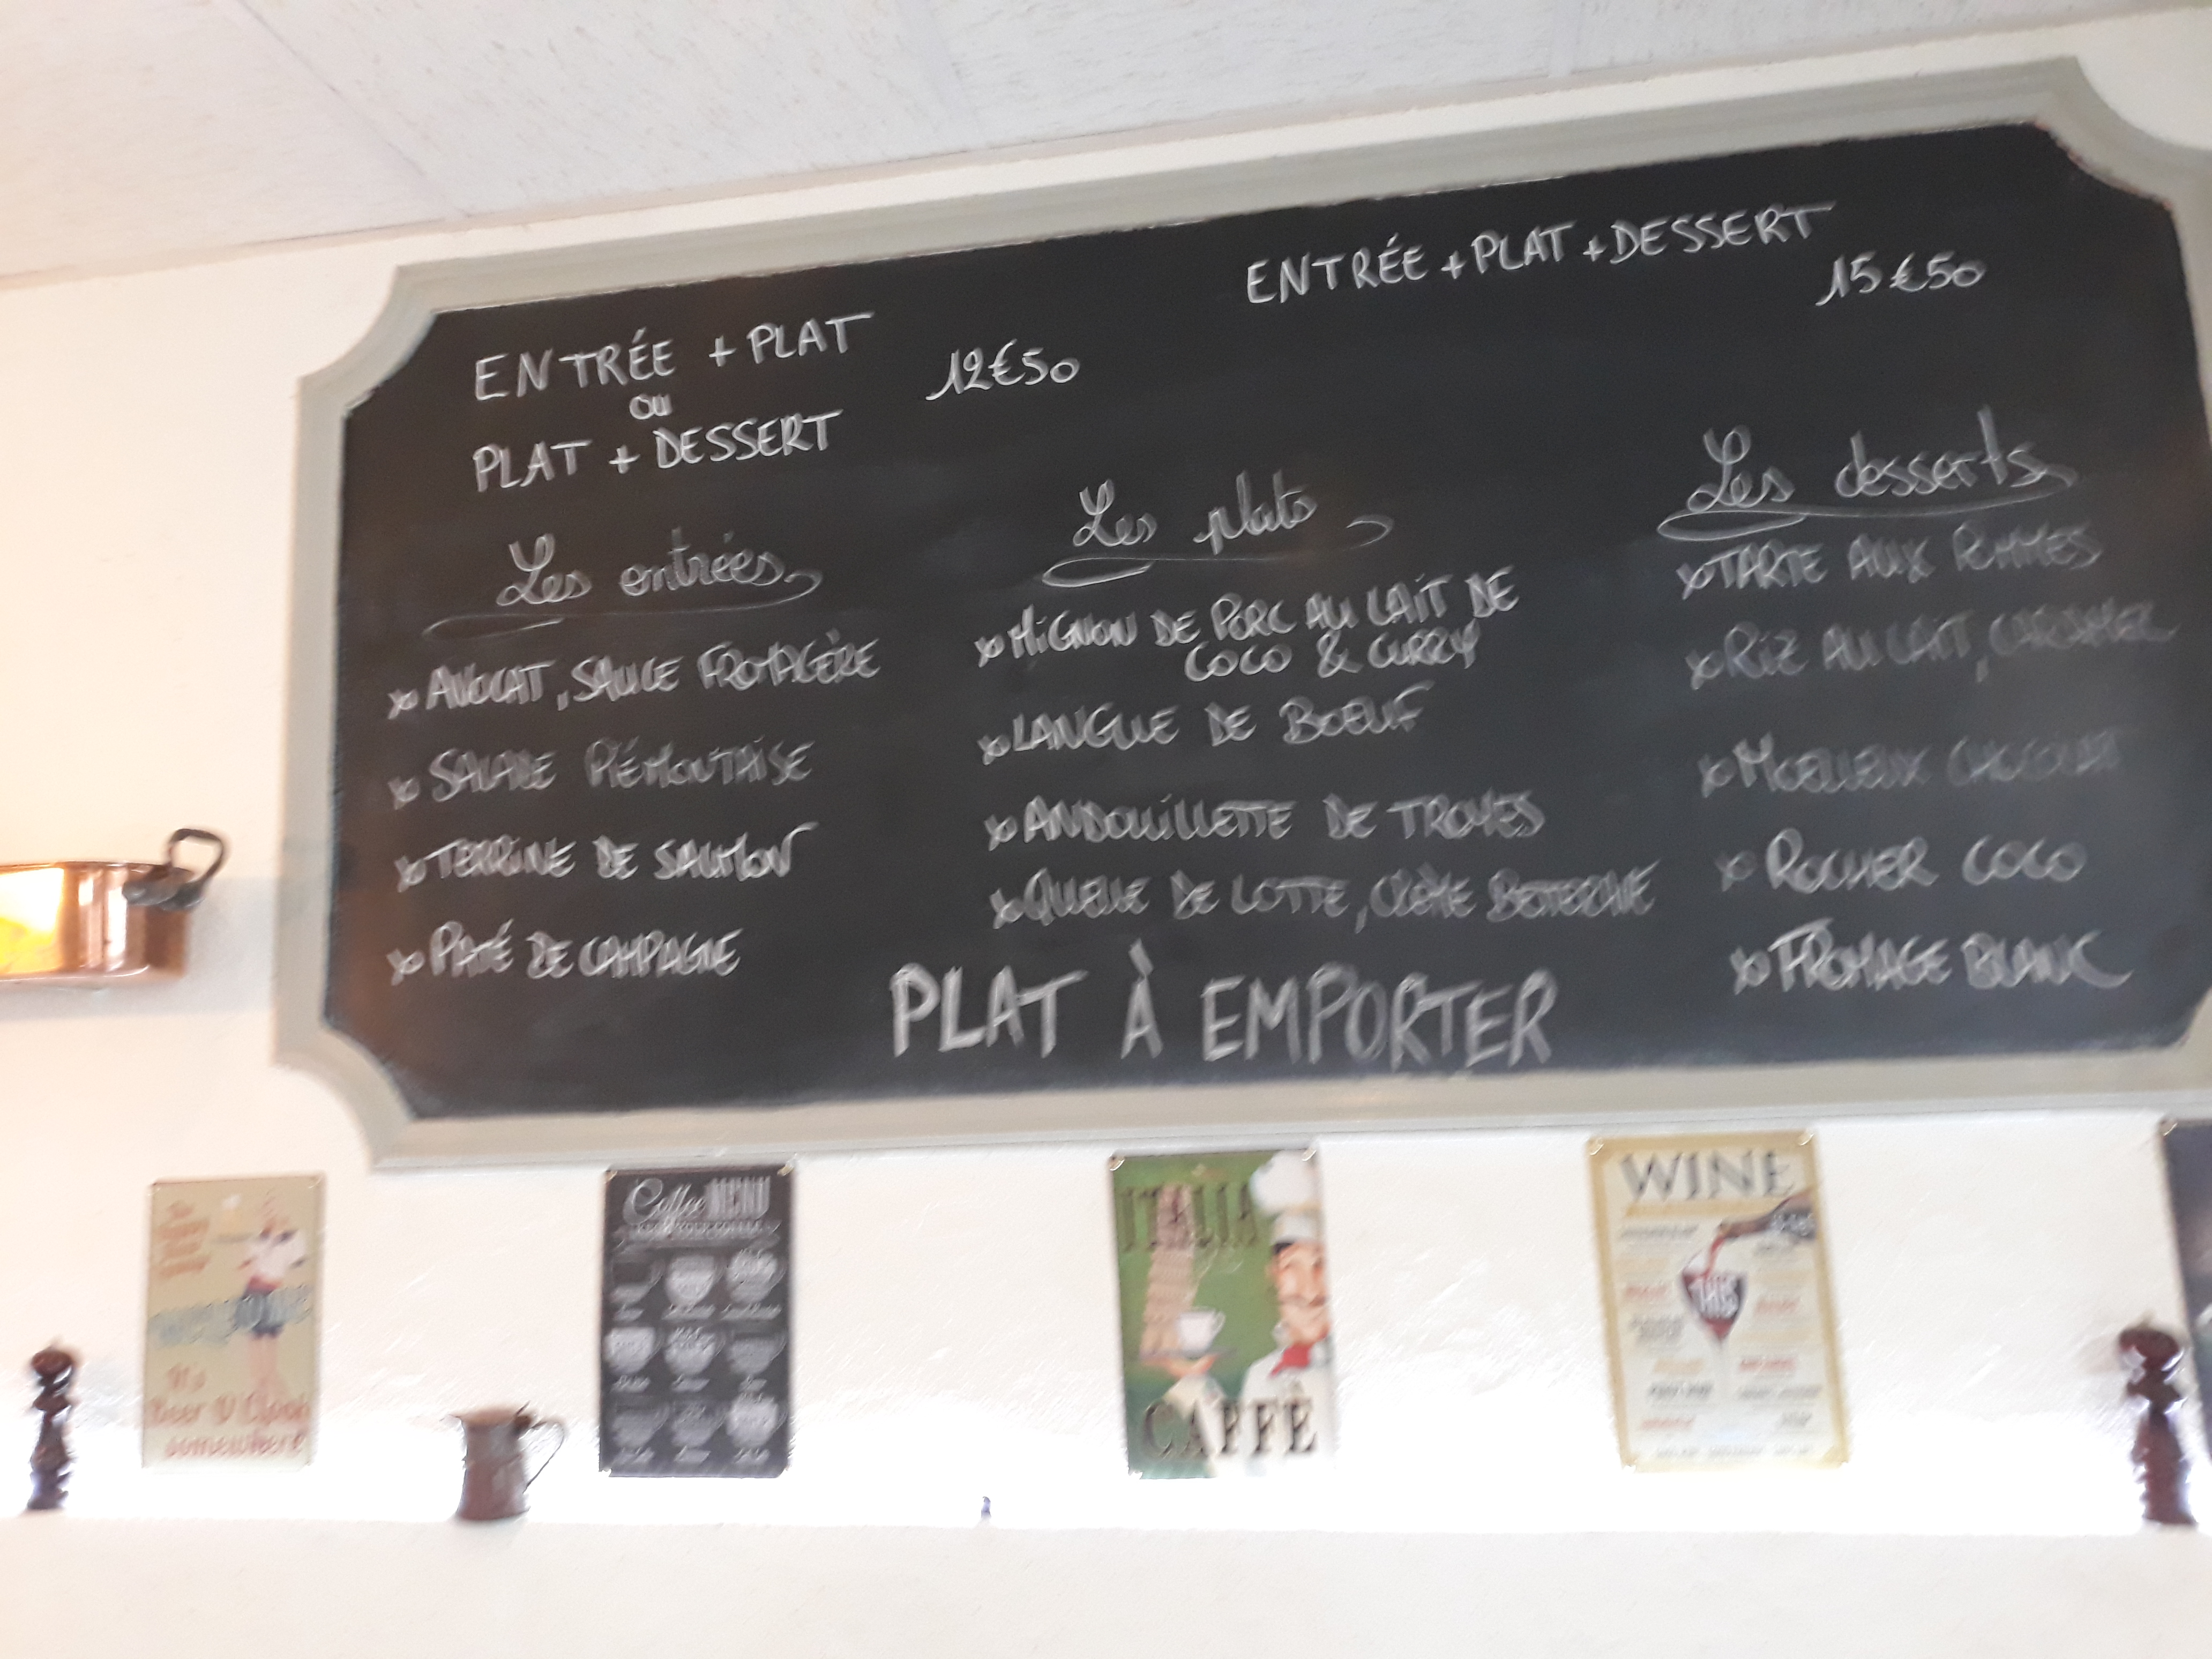 ENTRÉE + PLAT
ou
PLAT + DESSERT
12€50
ENTRÉE + PLAT + DESSERT
15€50
Les entrées
AVOCAT, SAUCE FROMAGÈRE
SALADE PIÉMONTAISE
TERRINE DE SAUMON
PATÉ DE CAMPAGNE
Les plats
MIGNON DE PORC AU LAIT DE
COCO & CURRY
LANGUE DE BOEUF
ANDOUILLETTE DE TROYES
QUEUE DE LOTTE, CRÈME BETTERAVE
Les desserts
TARTE AUX POMMES
RIZ AU LAIT, CARAMEL
MOELLEUX CHOCOLAT
ROCHER COCO
FROMAGE BLANC
PLAT À EMPORTER
It's
Beer O'Clock
somewhere
Coffee MENU
ITALIA
CAFFÈ
WINE